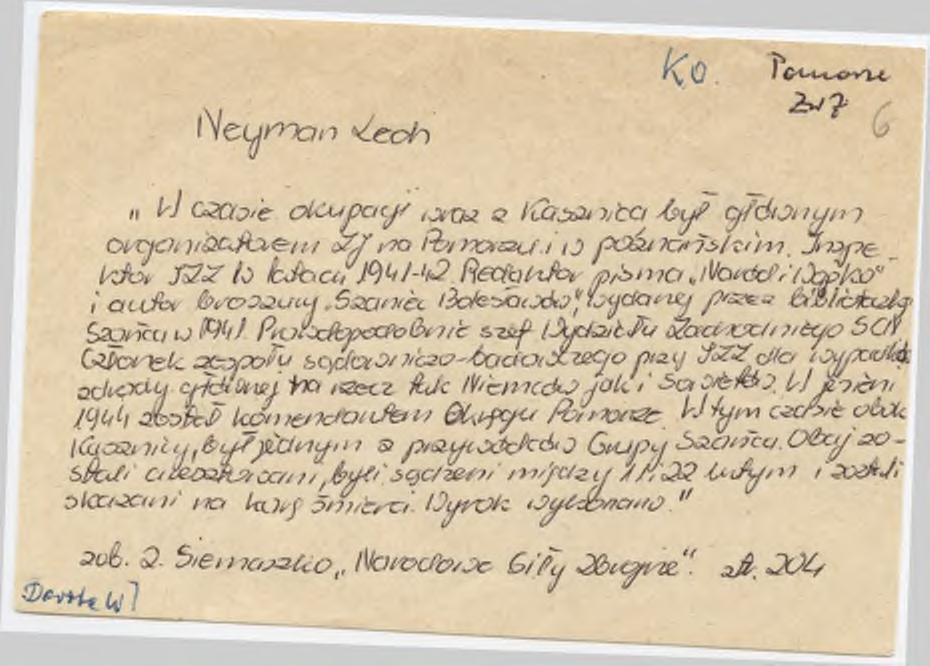 KO. Pomorze
ZWZ 6
Neyman Lech
„W czasie okupacji wraz z Kasznicą był głównym
organizatorem ZJ na Pomorzu i w poznańskim. Inspe-
ktor ZJ w latach 1941-42. Redaktor pisma „Naród i Wojsko"
i autor broszury „Szaniec Bolesławów", wydanej przez biblioteczkę
Szańca w 1941. Prawdopodobnie szef Wydziału Zachodniego SCN
Członek zespołu sądowniczo-badawczego przy dla wypadków
zdrady głównej na rzecz tak Niemców jak i Sowietów. W jesieni
1944 został komendantem Okręgu Pomorze. W tym czasie obok
Kasznicy, był jednym z przywódców Grupy Szańca. Obaj zo-
stali aresztowani, byli sądzeni między 11 i 22 lutym i zostali
skazani na karę śmierci. Wyrok wykonano."
zob. Z. Siemaszko „Narodowe Siły Zbrojne". str. 204
Dorota W